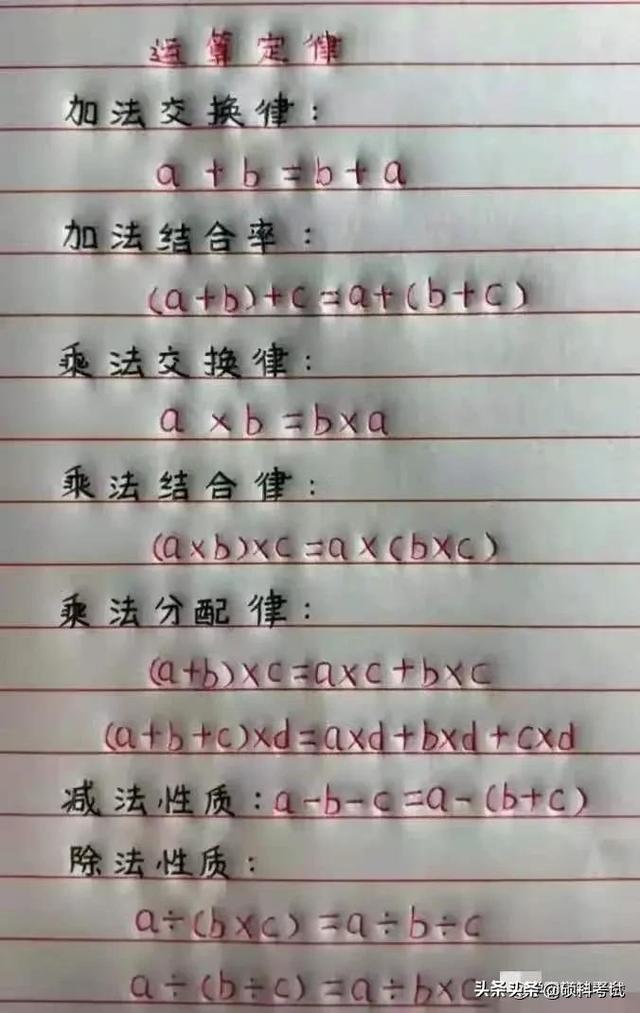 运算定律
加法交换律：
a+b=b+a
加法结合率：
(a+b)+c=a+(b+c)
乘法交换律：
a×b=b×a
乘法结合律：
(a×b)×c=a×(b×c)
乘法分配律：
(a+b)×c=a×c+b×c
(a+b+c)×d=a×d+b×d+c×d
减法性质：a-b-c=a-(b+c)
除法性质：
a÷(b×c)=a÷b÷c
a÷(b÷c)=a÷b×c
头条 @硕科考试